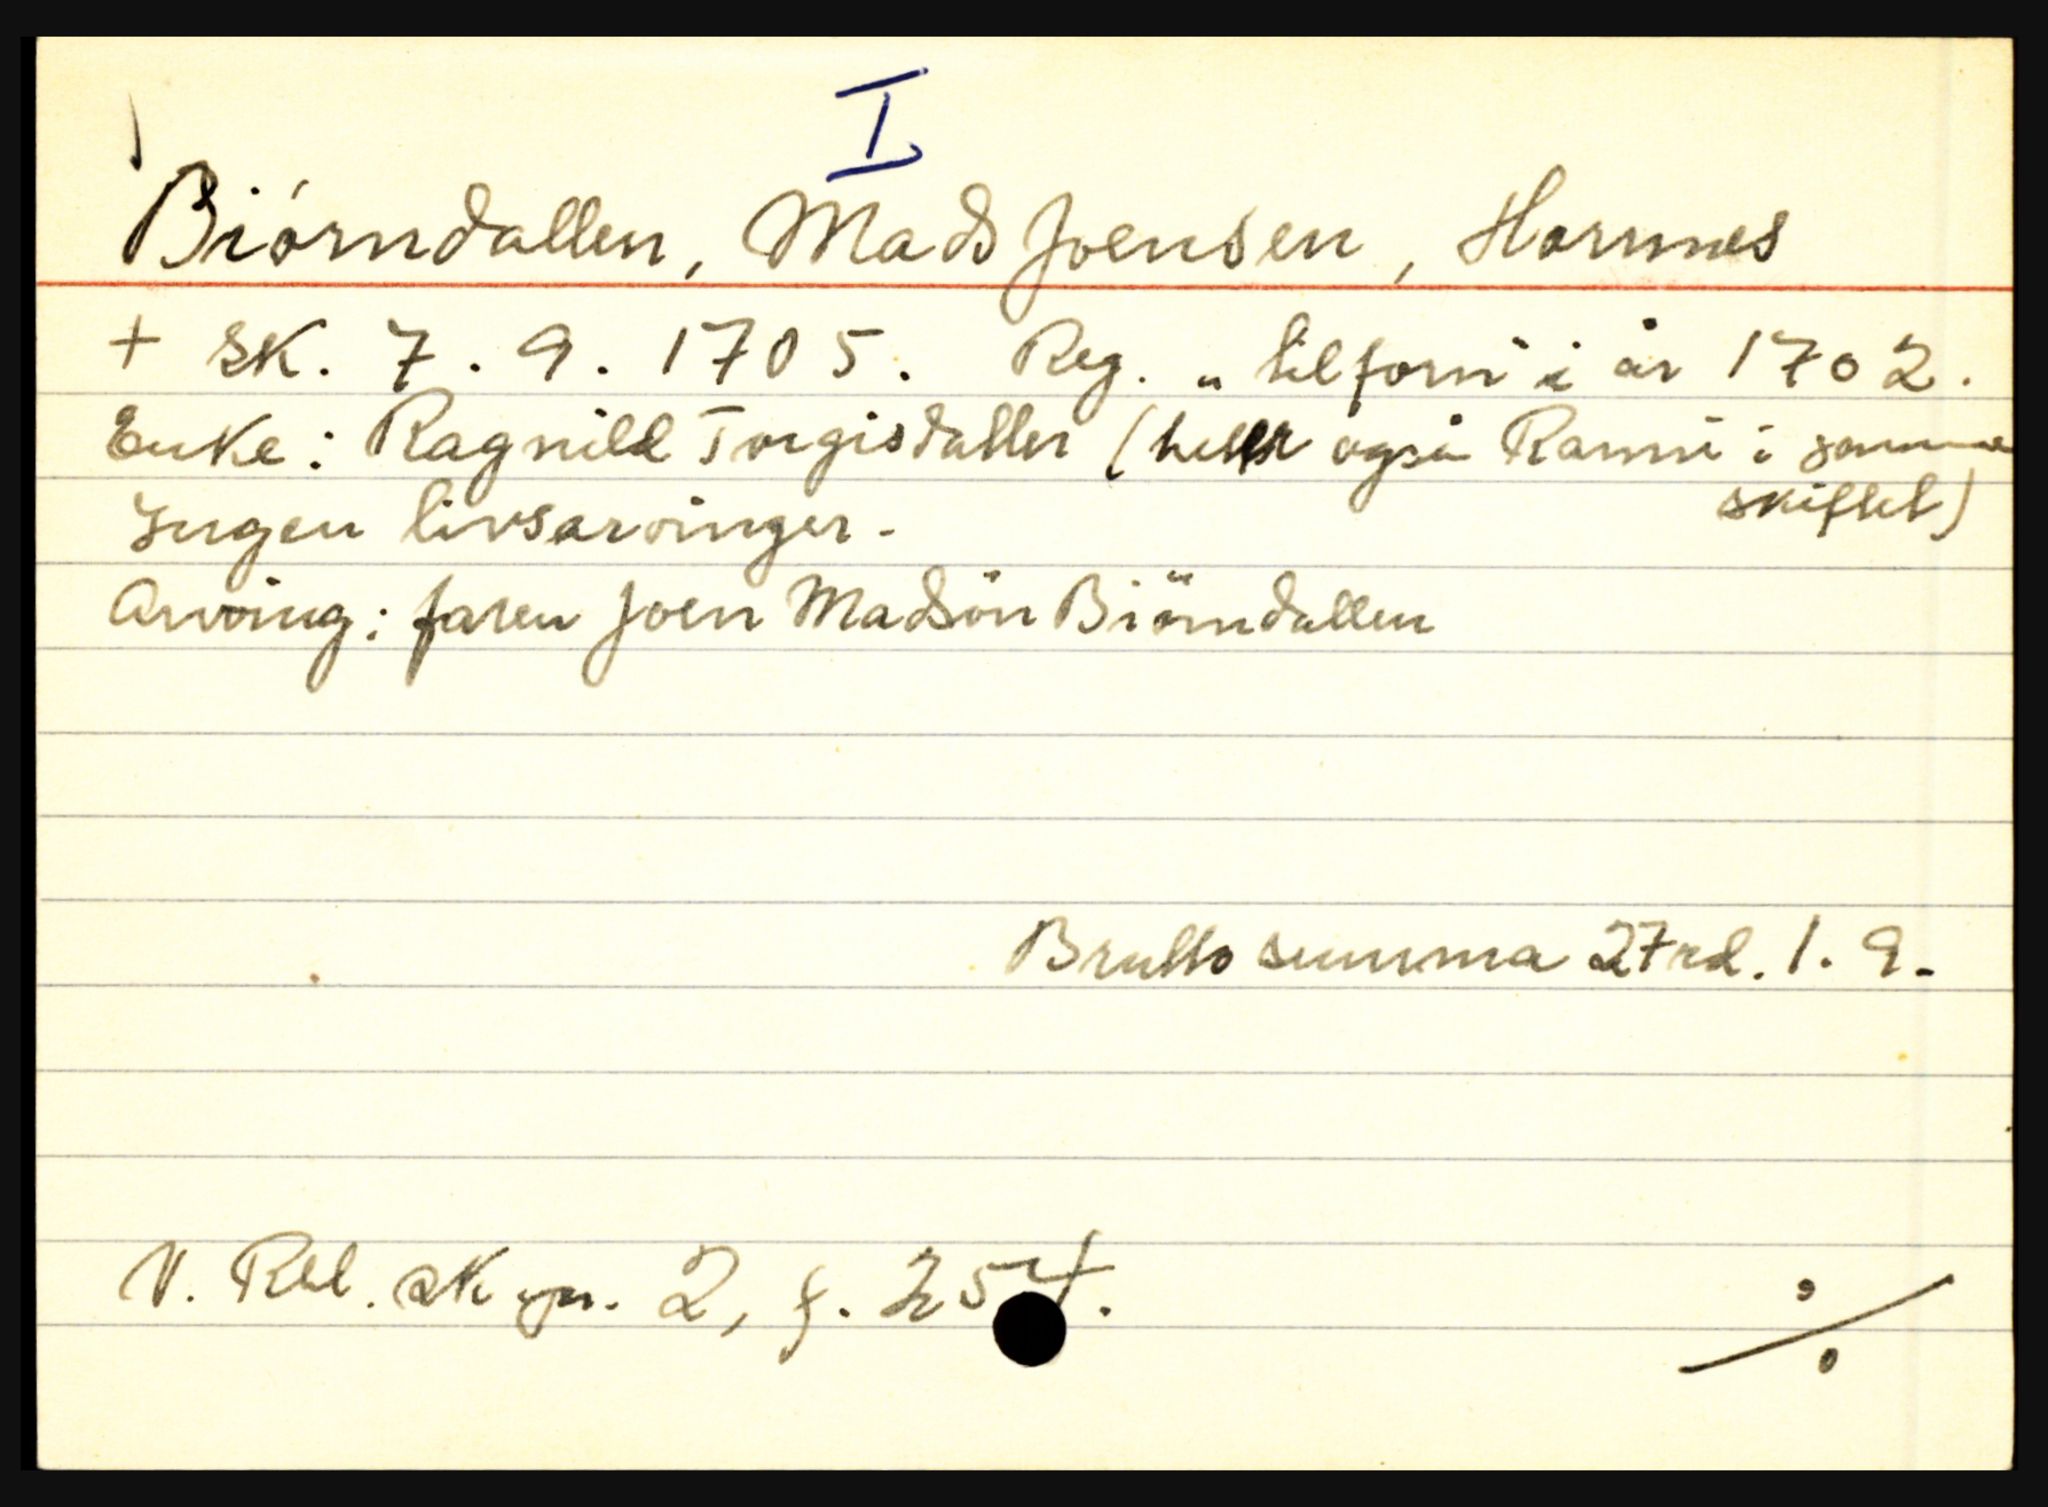 I
Biørndallen, Mads Joensen, Hornnes
+ sk. 7. 9. 1705. Reg. "tilforn" i år 1702.
Enke: Ragnild Torgisdatter (heter også Ranni i samme
skiftet)
Ingen livsarvinger.
Arving: faren Joen Madsön Biörndallen
Brutto summa 27 rd. 1. 9.
N. Rbl. sk. pr. 2, f. 254.